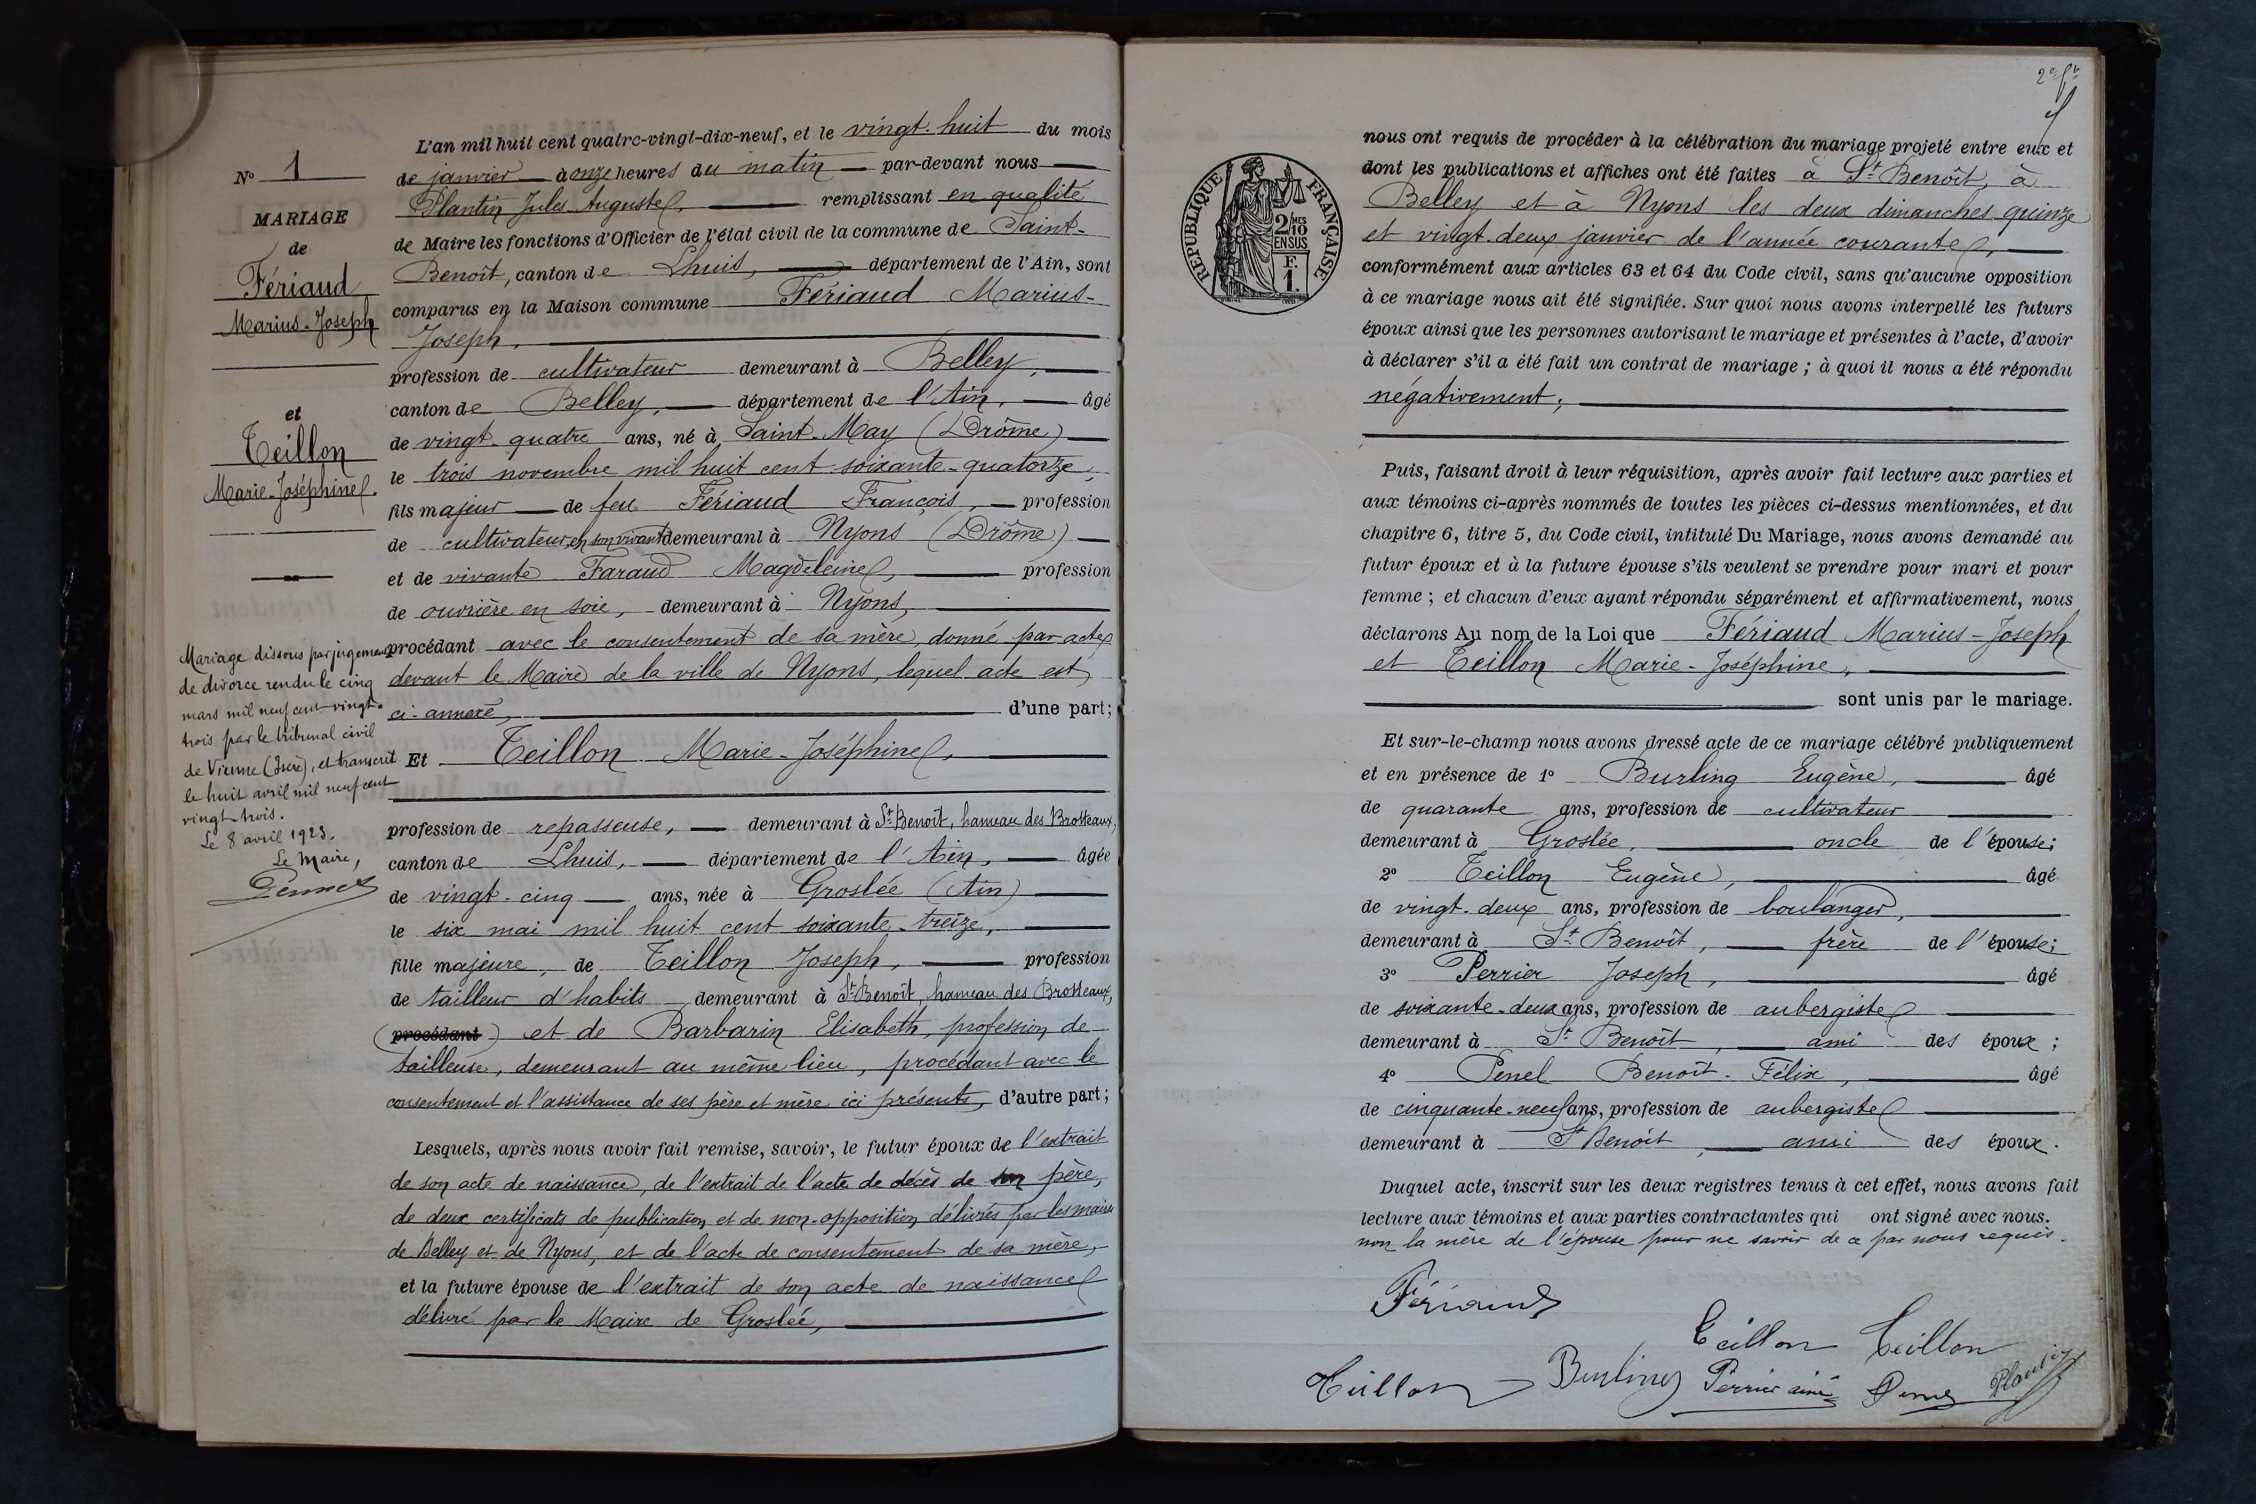 N° 1
MARIAGE
de
Fériaud
Marius-Joseph
et
Teillon
Marie-Joséphine.
Mariage dissous par jugement
de divorce rendu le cinq
mars mil neuf cent vingt-
trois par le tribunal civil
de Vienne (Isère), et transcrit
le huit avril mil neuf cent
vingt-trois.
Le 8 avril 1923.
Le Maire,
L'an mil huit cent quatre-vingt-dix-neuf, et le vingt-huit du mois
de janvier à onze heures du matin par-devant nous
Plantin Jules Auguste, remplissant en qualité
de Maire les fonctions d'Officier de l'état civil de la commune de Saint-
Benoît, canton de Lhuis, département de l'Ain, sont
comparus en la Maison commune Fériaud Marius-
Joseph,
profession de cultivateur demeurant à Belley,
canton de Belley, département de l'Ain, âgé
de vingt-quatre ans, né à Saint-May (Drôme)
le trois novembre mil huit cent soixante-quatorze,
fils majeur de feu Fériaud François, profession
de cultivateur, en son vivant demeurant à Nyons (Drôme)
et de vivante Faraud Magdeleine, profession
de ouvrière en soie, demeurant à Nyons,
procédant avec le consentement de sa mère donné par acte
devant le Maire de la ville de Nyons, lequel acte est
ci-annexé, d'une part;
Et Teillon Marie-Joséphine,
profession de repasseuse, demeurant à St Benoît, hameau des Brosseaux,
canton de Lhuis, département de l'Ain, âgée
de vingt-cinq ans, née à Groslée (Ain)
le six mai mil huit cent soixante-treize,
fille majeure, de Teillon Joseph, profession
de tailleur d'habits demeurant à St Benoît, hameau des Brosseaux,
(procédant) et de Barbarin Elisabeth, profession de
tailleuse, demeurant au même lieu, procédant avec le
consentement et l'assistance de ses père et mère ici présents, d'autre part;
Lesquels, après nous avoir fait remise, savoir, le futur époux de l'extrait
de son acte de naissance, de l'extrait de l'acte de décès de son père,
de deux certificats de publication et de non-opposition délivrés par les maires
de Belley et de Nyons, et de l'acte de consentement de sa mère,
et la future épouse de l'extrait de son acte de naissance
délivré par le Maire de Groslée,
RÉPUBLIQUE FRANÇAISE
2/10 MES
EN SUS
F.
1.
nous ont requis de procéder à la célébration du mariage projeté entre eux et
dont les publications et affiches ont été faites à St Benoît, à
Belley et à Nyons les deux dimanches quinze
et vingt-deux janvier de l'année courante,
conformément aux articles 63 et 64 du Code civil, sans qu'aucune opposition
à ce mariage nous ait été signifiée. Sur quoi nous avons interpellé les futurs
époux ainsi que les personnes autorisant le mariage et présentes à l'acte, d'avoir
à déclarer s'il a été fait un contrat de mariage; à quoi il nous a été répondu
négativement;
Puis, faisant droit à leur réquisition, après avoir fait lecture aux parties et
aux témoins ci-après nommés de toutes les pièces ci-dessus mentionnées, et du
chapitre 6, titre 5, du Code civil, intitulé Du Mariage, nous avons demandé au
futur époux et à la future épouse s'ils veulent se prendre pour mari et pour
femme; et chacun d'eux ayant répondu séparément et affirmativement, nous
déclarons Au nom de la Loi que Fériaud Marius-Joseph
et Teillon Marie-Joséphine,
sont unis par le mariage.
Et sur-le-champ nous avons dressé acte de ce mariage célébré publiquement
et en présence de 1° Burling Eugène, âgé
de quarante ans, profession de cultivateur
demeurant à Groslée, oncle de l'épouse;
2° Teillon Eugène, âgé
de vingt-deux ans, profession de boulanger,
demeurant à St Benoît, frère de l'épouse;
3° Perrier Joseph, âgé
de soixante-deux ans, profession de aubergiste
demeurant à St Benoît, ami des époux;
4° Penel Benoît-Félix, âgé
de cinquante-neuf ans, profession de aubergiste
demeurant à St Benoît, ami des époux.
Duquel acte, inscrit sur les deux registres tenus à cet effet, nous avons fait
lecture aux témoins et aux parties contractantes qui ont signé avec nous.
non la mère de l'épouse pour ne savoir de ce par nous requis.
Fériaud
Teillon Teillon
Teillon Burling Perrier aîné Penel Plantin